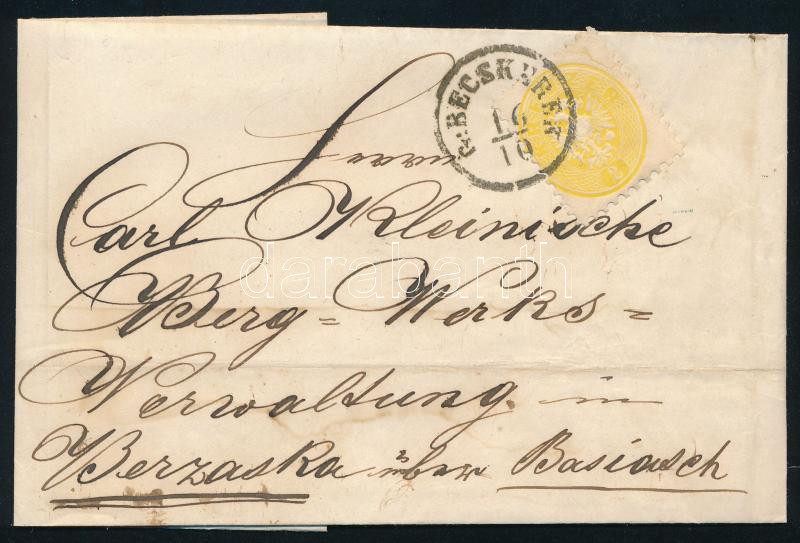 G: BECSKEREK
16
10
2
Herrn
Carl Kleinische
Berg=Werks=
Verwaltung in
Berzaska über Basiasch
darabanth